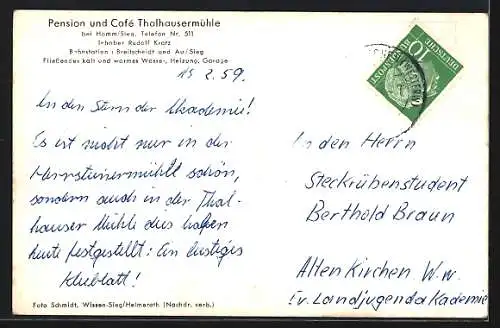 Pension und Café Thalhausermühle
bei Hamm/Sieg, Telefon Nr. 511
Inhaber Rudolf Kratz
Bahnstation: Breitscheidt und Au/Sieg
Fließendes kalt und warmes Wasser, Heizung, Garage
2.59.
An den Stern der Akademie!
Es ist nicht nur in der
Herrsteinermühle schön,
sondern auch in der Thal-
hauser Mühle dies haben
heute festgestellt: Ein lustiges
Kleeblatt!
Foto Schmidt, Wissen-Sieg/Helmeroth (Nachdr. verb.)
DEUTSCHE
BUNDESPOST
10
An den Herrn
Steckrübenstudent
Berthold Braun
Altenkirchen W.w.
Ev. Landjugendakademie